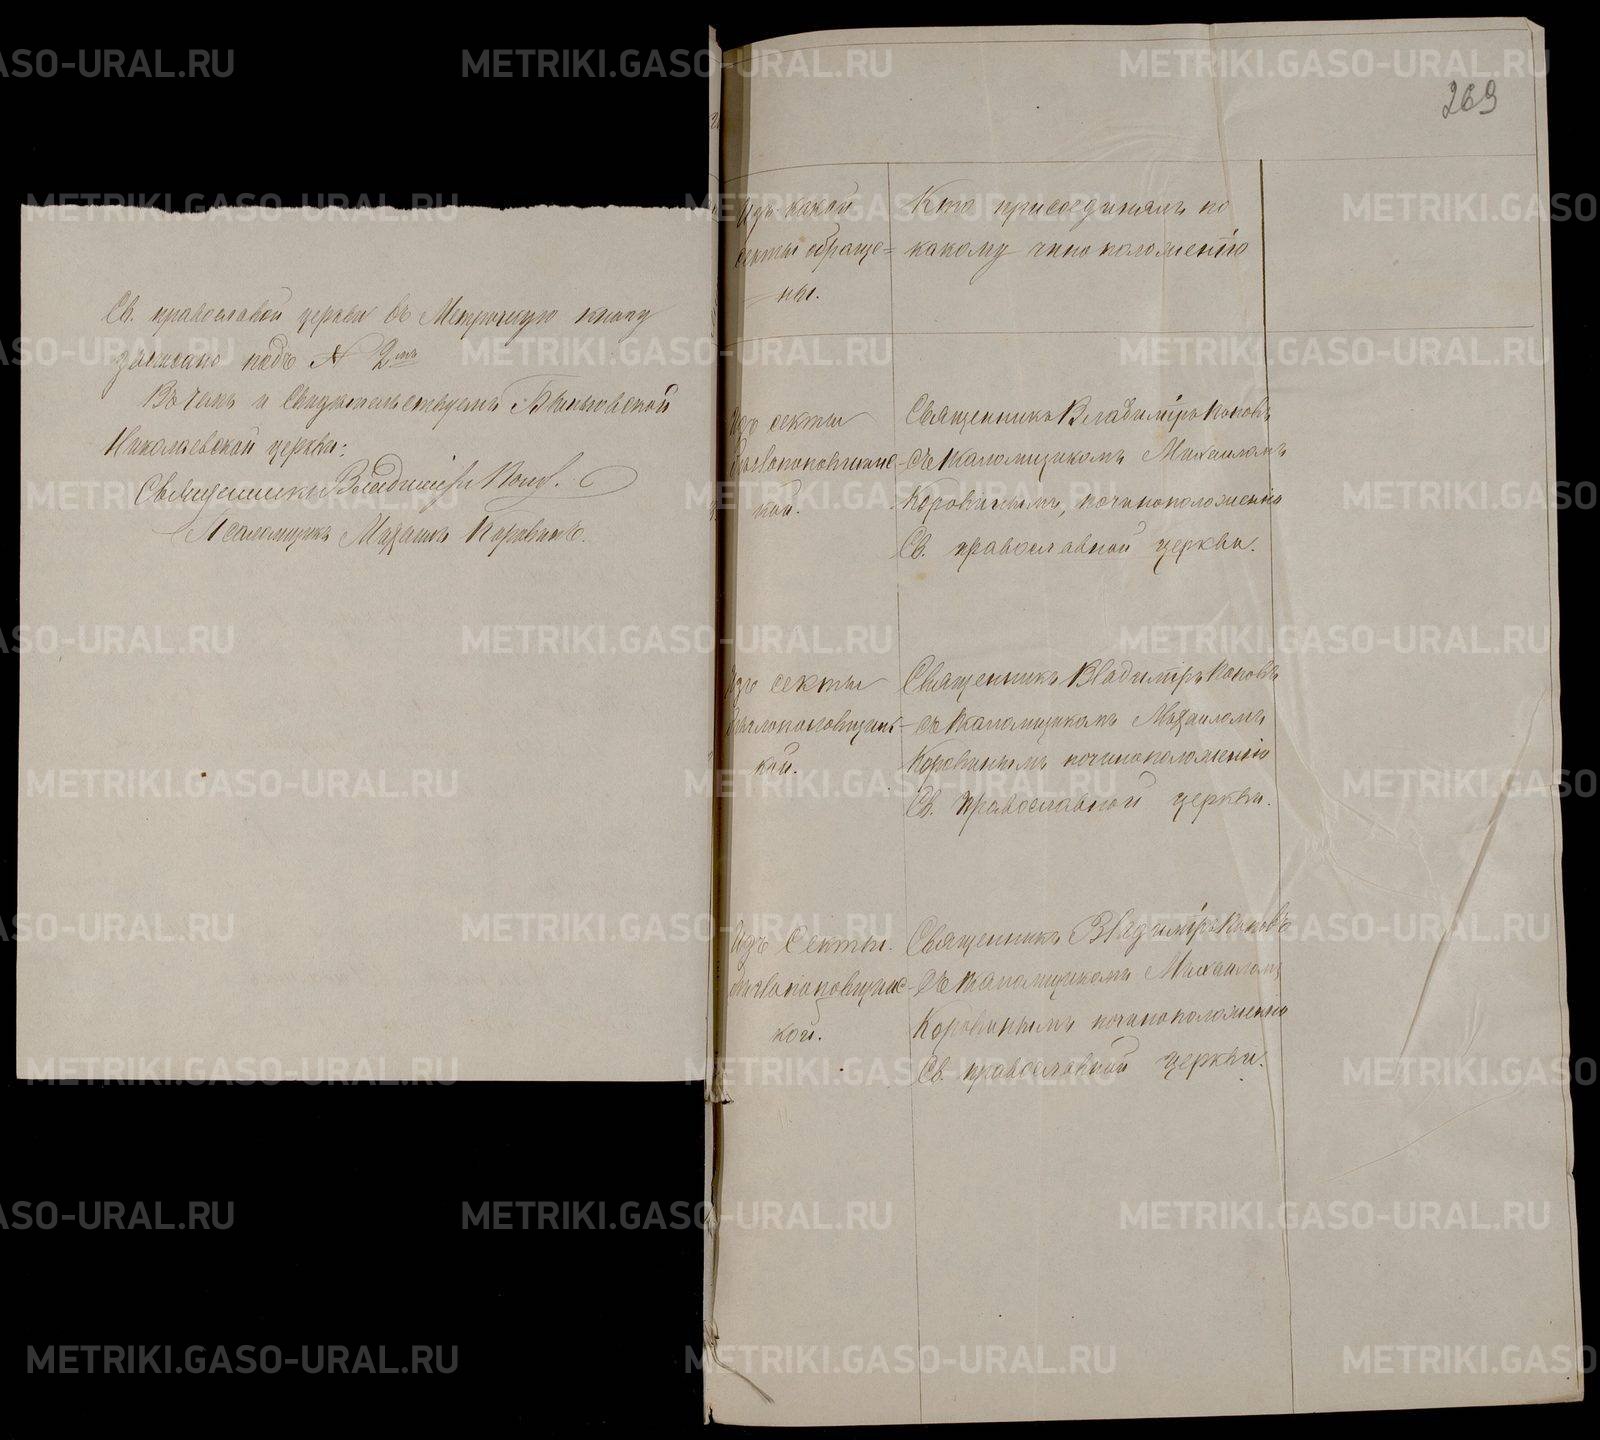 Св. православой церкви въ Метрическую книгу
записано подъ № 2мъ
Въ чемъ и Свидетельствуемъ Быньговской
Николаевской церкви:
Священникъ Владимiръ Поповъ.
Псаломщикъ Михаилъ Коровинъ.
269
Изъ какой
секты обраще=
ны.
Кто присоединялъ по
какому чиноположенiю
Изъ секты
кой.
Священникъ Владимiръ Поповъ
съ псаломщикомъ Михаиломъ
Коровинымъ, по чиноположенiю
Св. православной церкви.
Изъ секты
кой.
Священникъ Владимiръ Поповъ
съ псаломщикомъ Михаиломъ
Коровинымъ по чиноположенiю
Св. православной церкви.
Изъ Секты
кой.
Священникъ Владимiръ Поповъ
съ псаломщикомъ Михаиломъ
Коровинымъ по чиноположенiю
Св. православной церкви.
METRIKI.GASO-URAL.RU